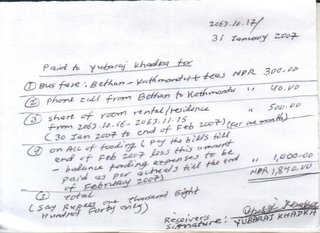 2063.10.17/
31 January 2007
Paid to Yubaraj Khadka for
① Bus fare: Bethan - Kathmandu + tees NPR 300.00
② Phone call from Bethan to Kathmandu " 40.00
③ share of room rental/residence " 500.00
from 2063.10.16 - 2063.11.15
(30 Jan 2007 to end of Feb 2007) (for one month)
④ on A/c of fooding (Pay the bills till
end of Feb 2007 less this amount
- balance fooding expenses to be
paid as per actuals till the end
of February 2007) " 1,000.00
⑤ total NPR 1,840.00
(Say Rupees one thousand Eight
Hundred Forty only)
Receiver's
Signature: YUBARAJ KHADKA